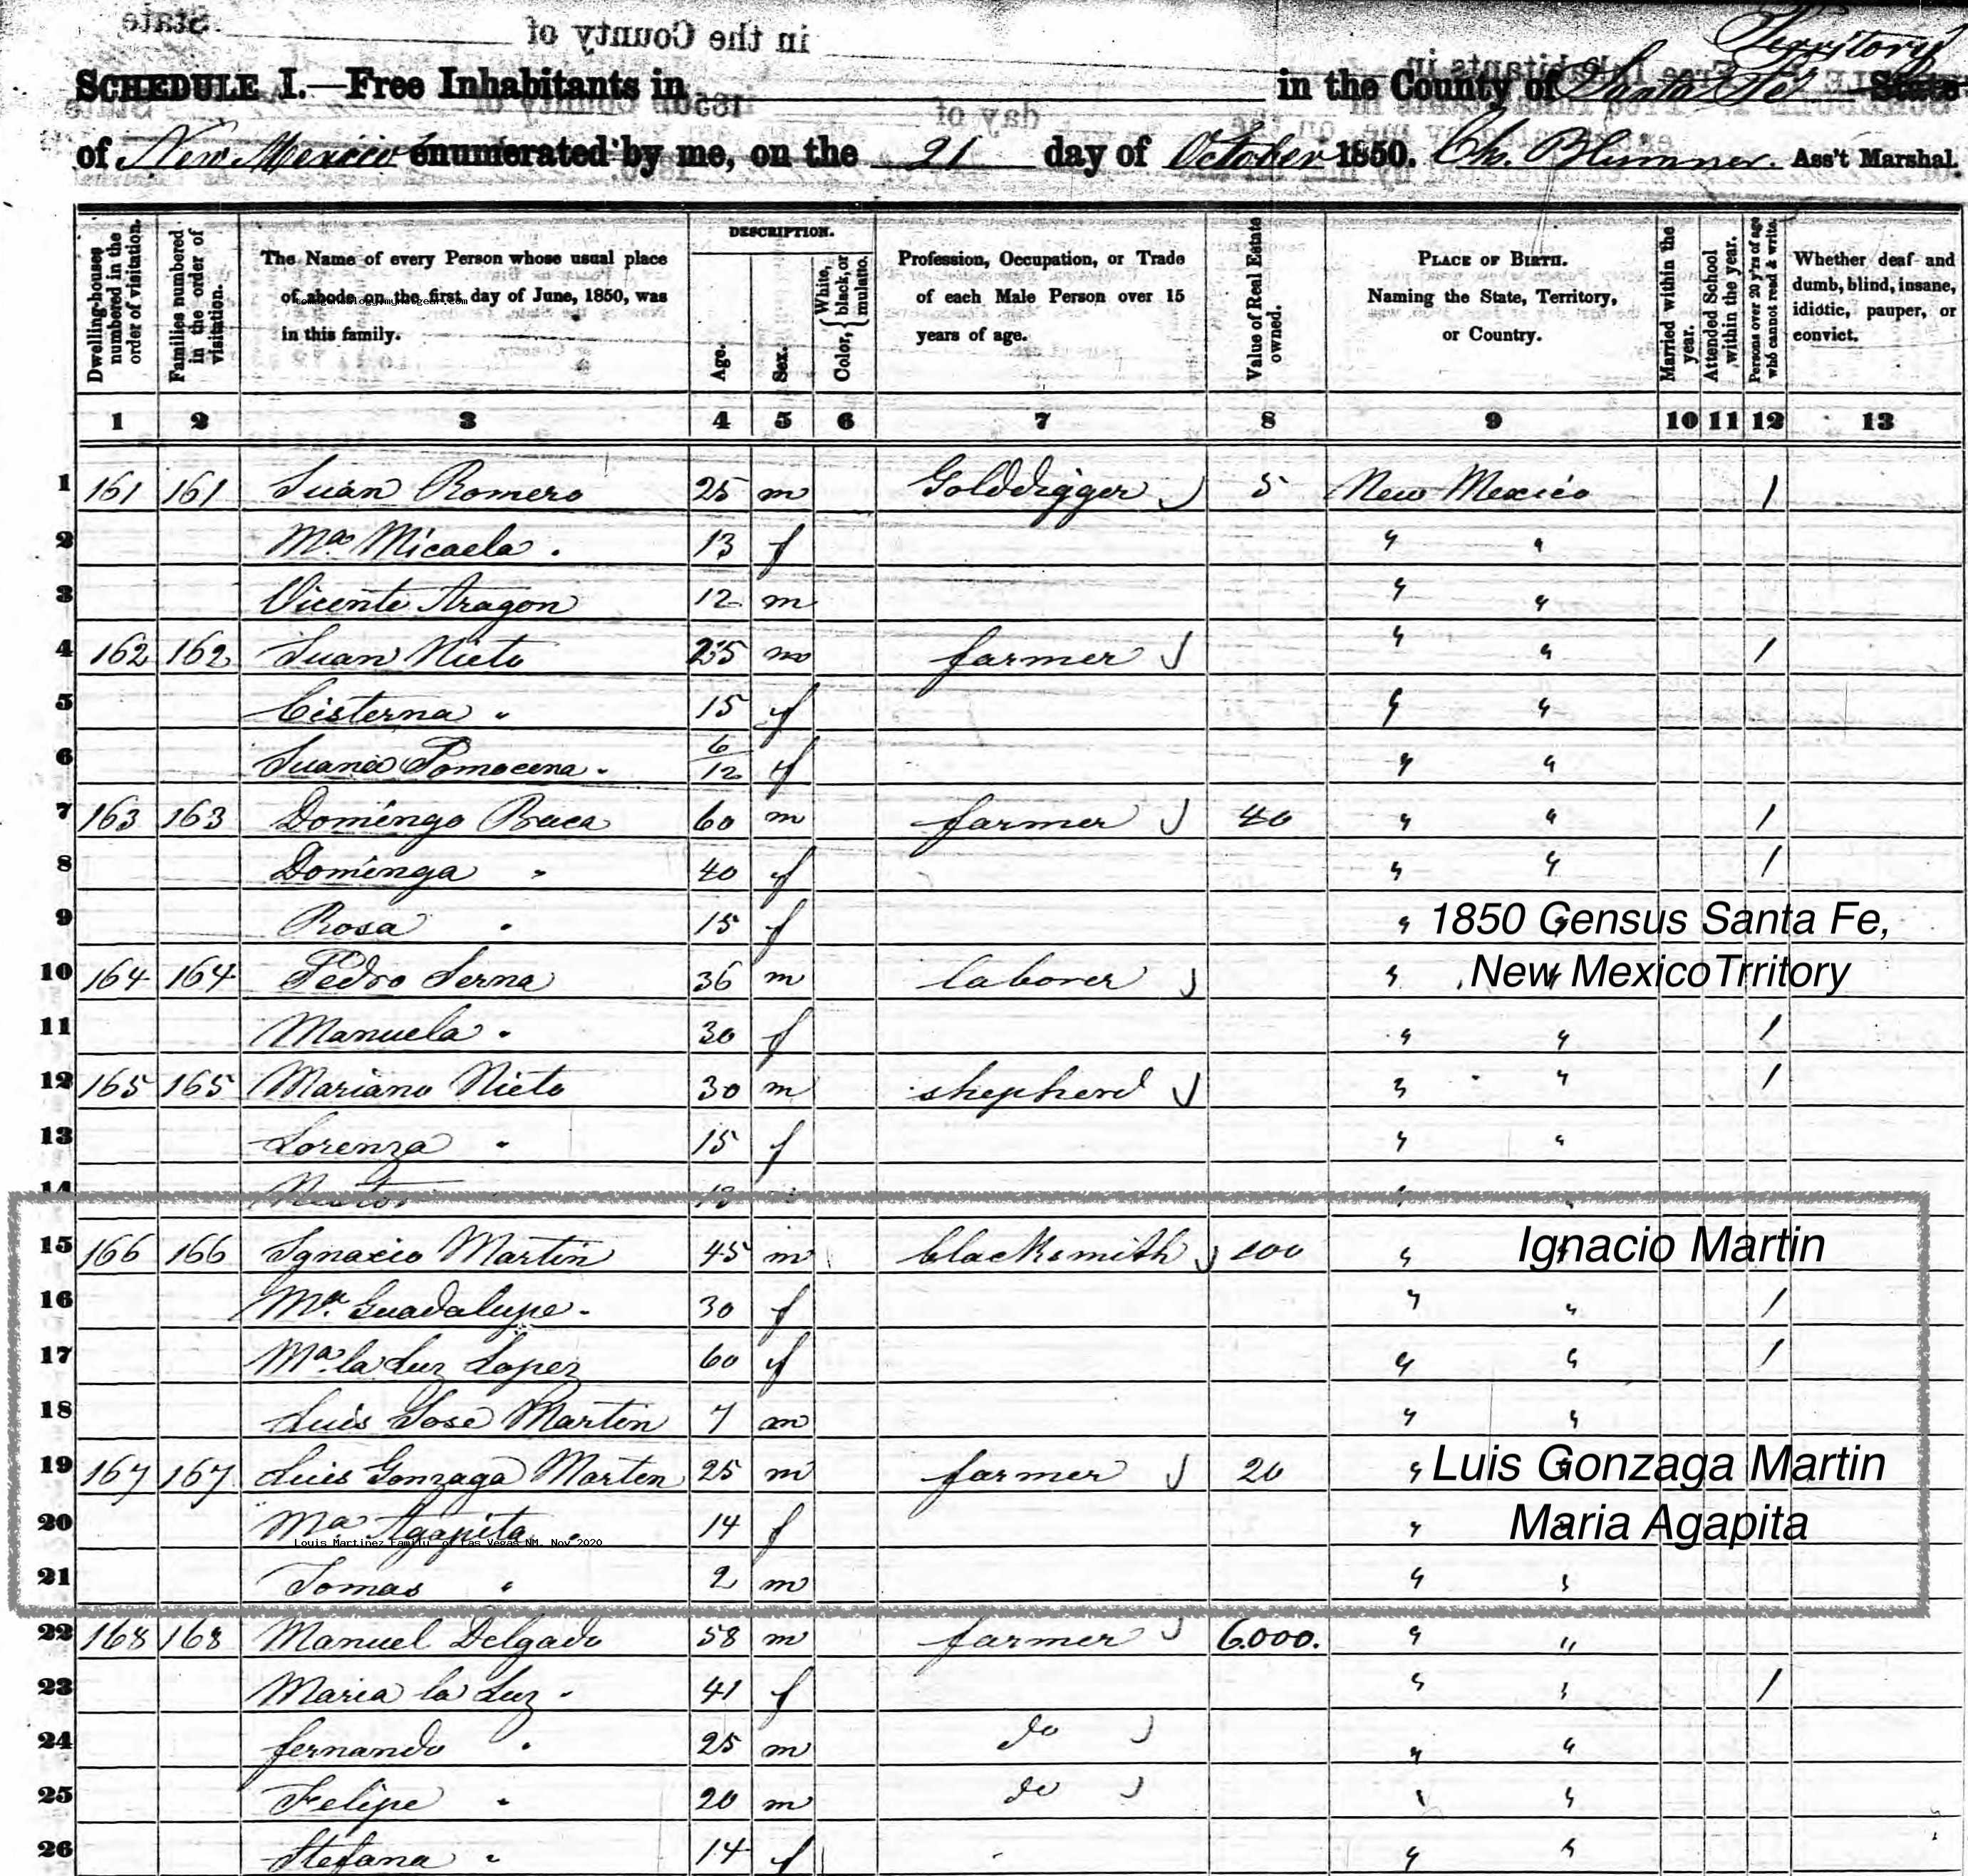 Territory
SCHEDULE I.—Free Inhabitants in in the County of Santa Fe State
of New Mexico enumerated by me, on the 21 day of October 1850. Ch. Blumner. Ass't Marshal.
Dwelling-houses numbered in the order of visitation.
Families numbered in the order of visitation.
The Name of every Person whose usual place of abode on the first day of June, 1850, was in this family.
DESCRIPTION.
Age.
Sex.
Color, { White, black, or mulatto.
Profession, Occupation, or Trade of each Male Person over 15 years of age.
Value of Real Estate owned.
PLACE OF BIRTH. Naming the State, Territory, or Country.
Married within the year.
Attended School within the year.
Persons over 20 y'rs of age who cannot read & write.
Whether deaf and dumb, blind, insane, idiotic, pauper, or convict.
1 2 3 4 5 6 7 8 9 10 11 12 13
1 161 161 Juan Romero 25 m Golddigger 5 New Mexico 1
2 Ma Micaela 13 f " "
3 Vicente Aragon 12 m " "
4 162 162 Juan Nieto 25 m farmer " " 1
5 Cisterna " 15 f " "
6 Juana Pomocena 6/12 f " "
7 163 163 Domingo Baca 60 m farmer 40 " " 1
8 Dominga " 40 f " " 1
9 Rosa " 15 f " " 1850 Census Santa Fe,
10 164 164 Pedro Serna 36 m laborer " " New MexicoTrritory
11 Manuela " 30 f " " 1
12 165 165 Mariano Nieto 30 m shepherd " " 1
13 Lorenza " 15 f " "
14 Nestor " "
15 166 166 Ignacio Martin 45 m blacksmith 100 " " Ignacio Martin
16 Ma Guadalupe 30 f " " 1
17 Ma la Luz Lopez 60 f " " 1
18 Luis Jose Martin 7 m " "
19 167 167 Luis Gonzaga Martin 25 m farmer 20 " " Luis Gonzaga Martin
20 Ma Agapita " 14 f " " Maria Agapita
Louis Martinez Family of Las Vegas NM. Nov 2020
21 Tomas " 2 m " "
22 168 168 Manuel Delgado 58 m farmer 6.000. " "
23 Maria la Luz " 41 f " " 1
24 fernando " 25 m do " "
25 Felipe " 20 m do " "
26 Stefana " 14 f " "